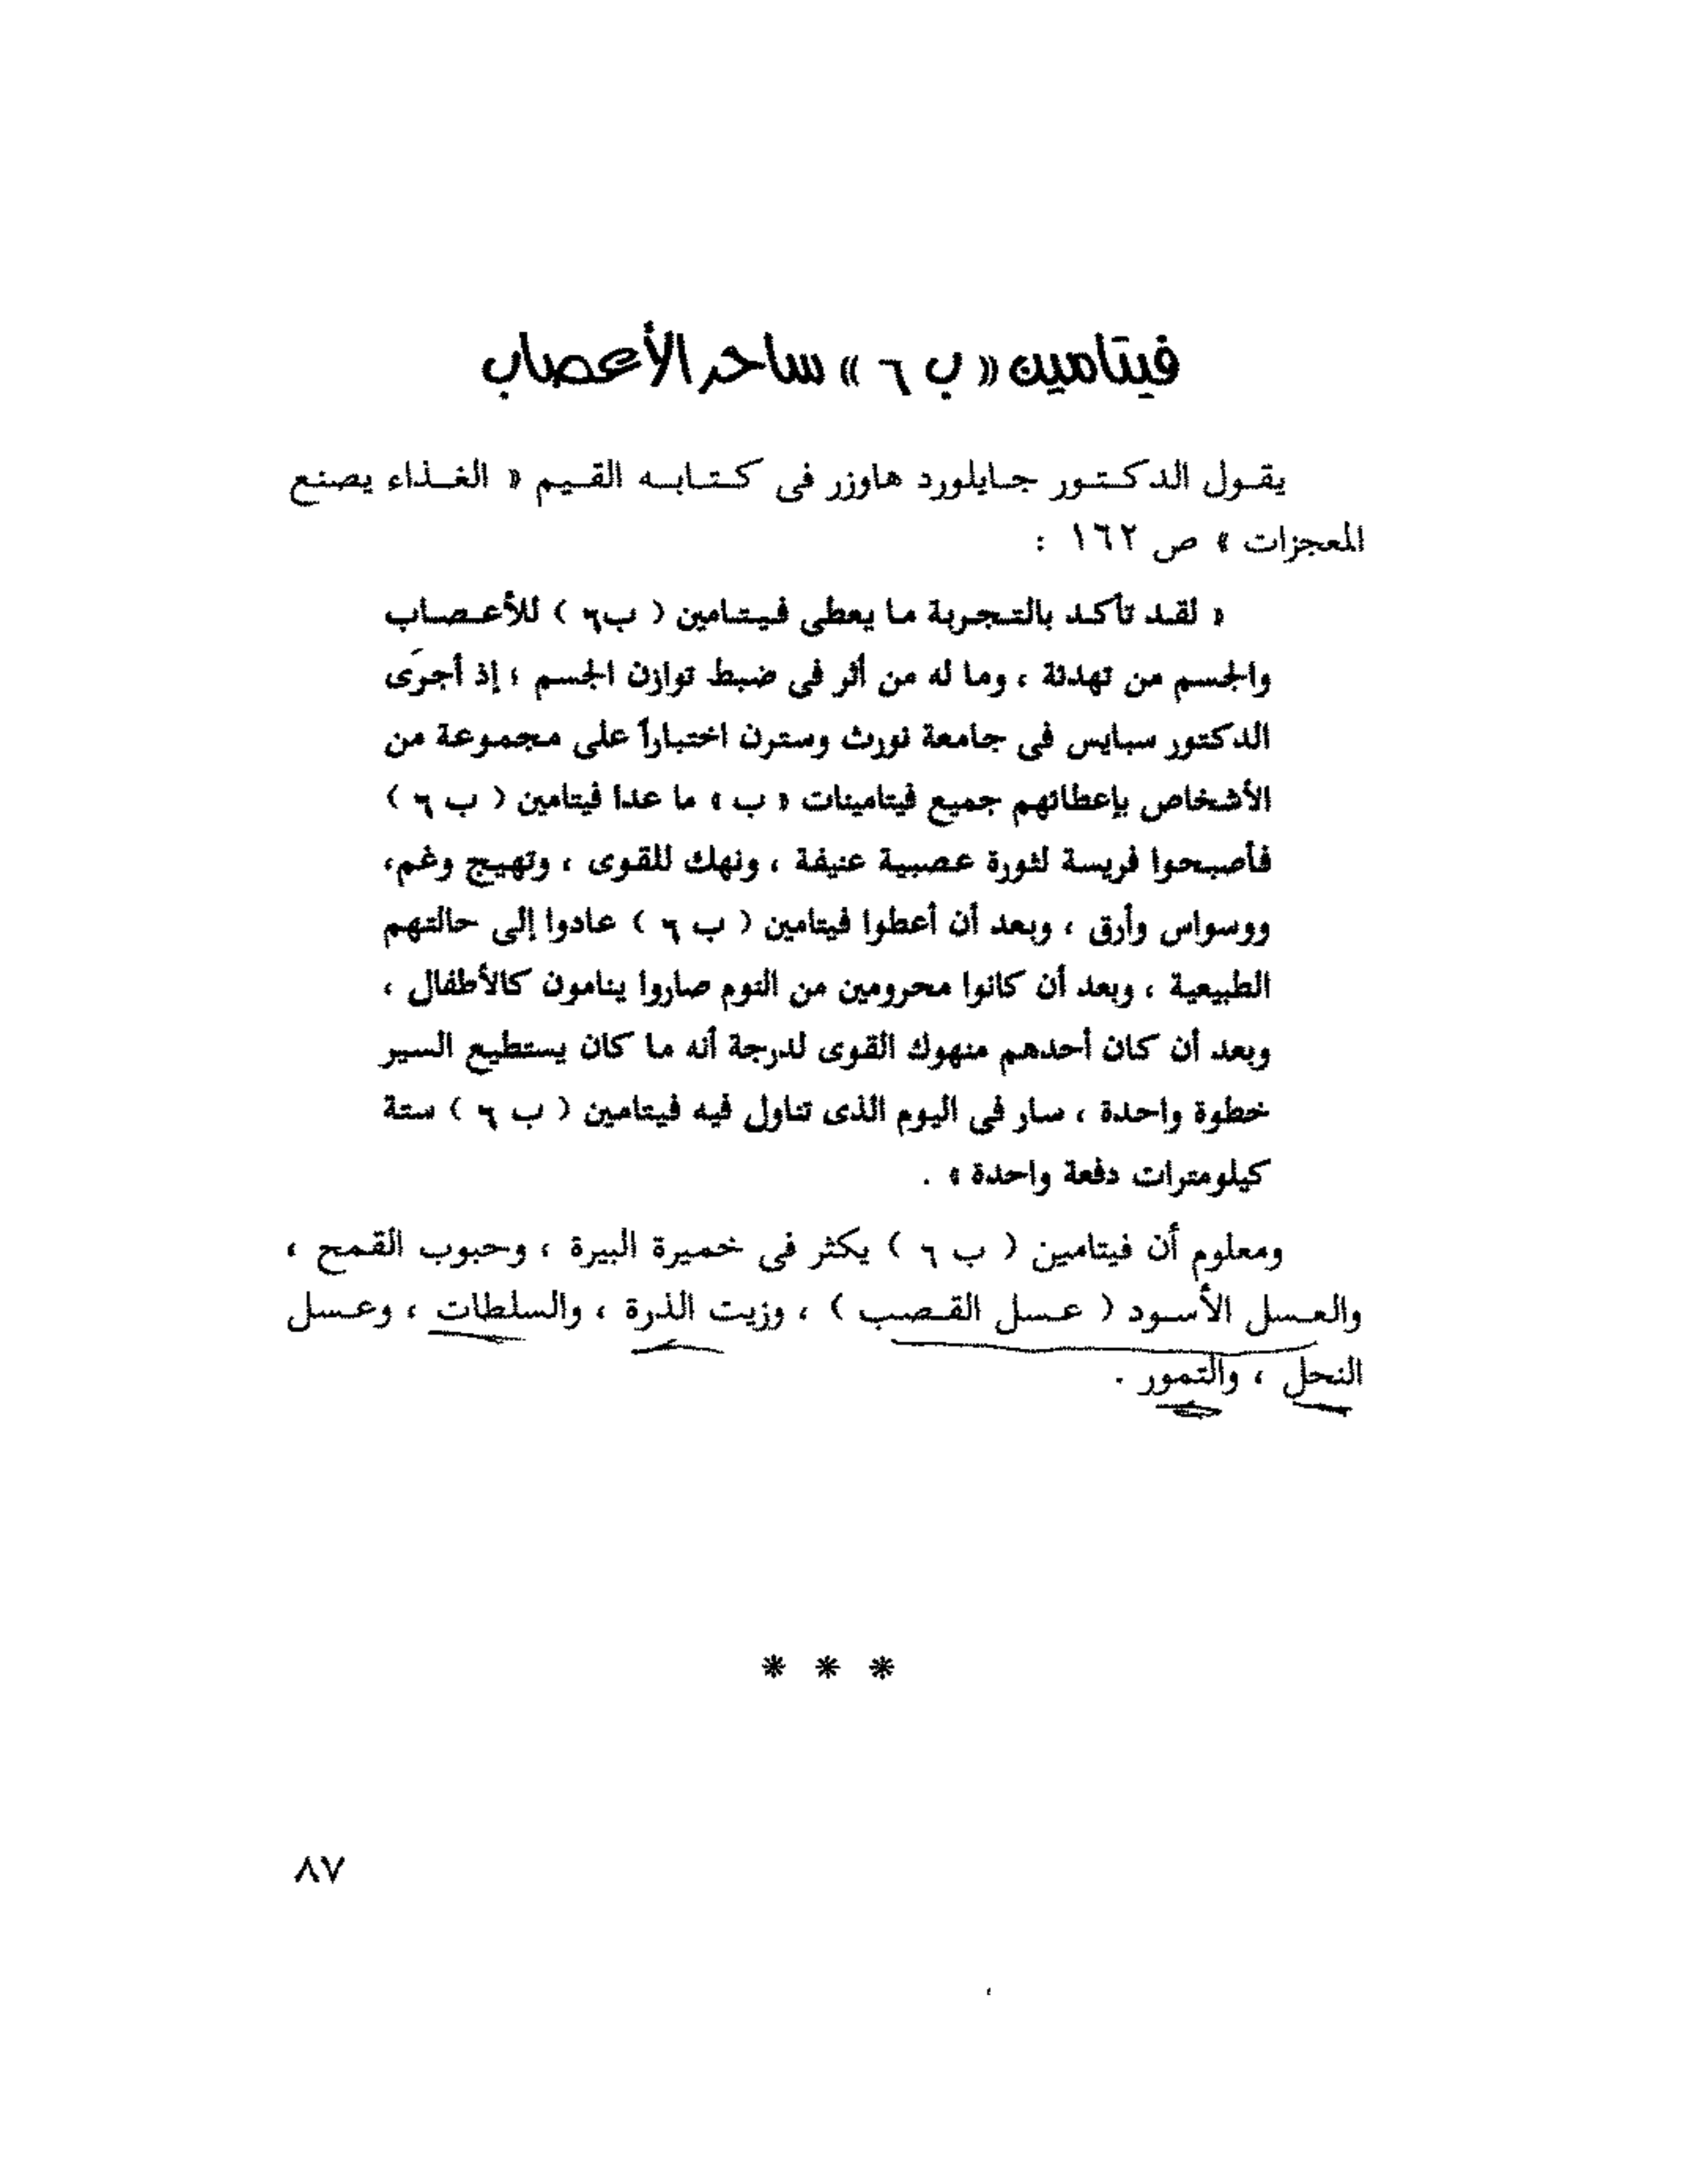 فيتامين « ب ٦ » ساحر الأعصاب
يقول الدكتور جايلورد هاوزر فى كتابه القيم « الغذاء يصنع
المعجزات » ص ١٦٢ :
« لقد تأكد بالتجربة ما يعطى فيتامين ( ب٦ ) للأعصاب
والجسم من تهدئة ، وما له من أثر فى ضبط توازن الجسم ؛ إذ أجرَى
الدكتور سبايس فى جامعة نورث وسترن اختباراً على مجموعة من
الأشخاص بإعطائهم جميع فيتامينات « ب » ما عدا فيتامين ( ب ٦ )
فأصبحوا فريسة لثورة عصبية عنيفة ، ونهك للقوى ، وتهيج وغم،
ووسواس وأرق ، وبعد أن أعطوا فيتامين ( ب ٦ ) عادوا إلى حالتهم
الطبيعية ، وبعد أن كانوا محرومين من النوم صاروا ينامون كالأطفال ،
وبعد أن كان أحدهم منهوك القوى لدرجة أنه ما كان يستطيع السير
خطوة واحدة ، سار فى اليوم الذى تناول فيه فيتامين ( ب ٦ ) ستة
كيلومترات دفعة واحدة » .
ومعلوم أن فيتامين ( ب ٦ ) يكثر فى خميرة البيرة ، وحبوب القمح ،
والعسل الأسود ( عسل القصب ) ، وزيت الذرة ، والسلطات ، وعسل
النحل ، والتمور .
* * *
٨٧